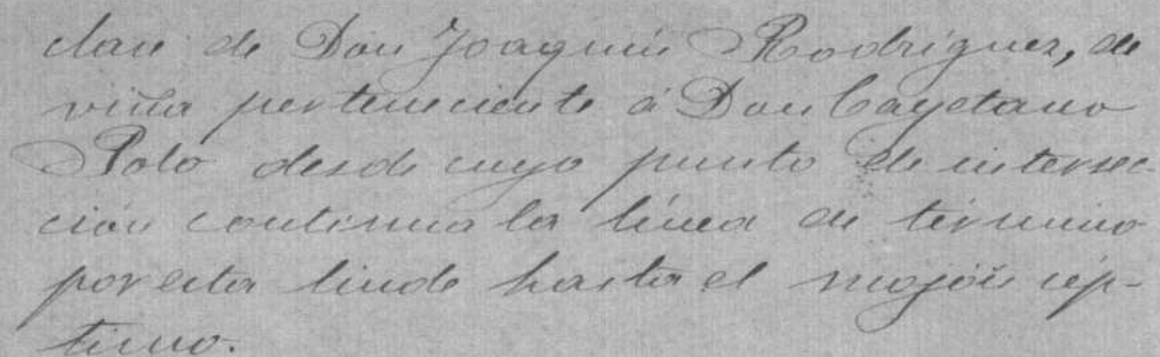 clase de Don Joaquin Rodriguez, de
viña perteneciente á Don Cayetano
Polo desde cuyo punto de intersec-
ción continua la línea de término
por esta linde hasta el mojón sép-
timo.